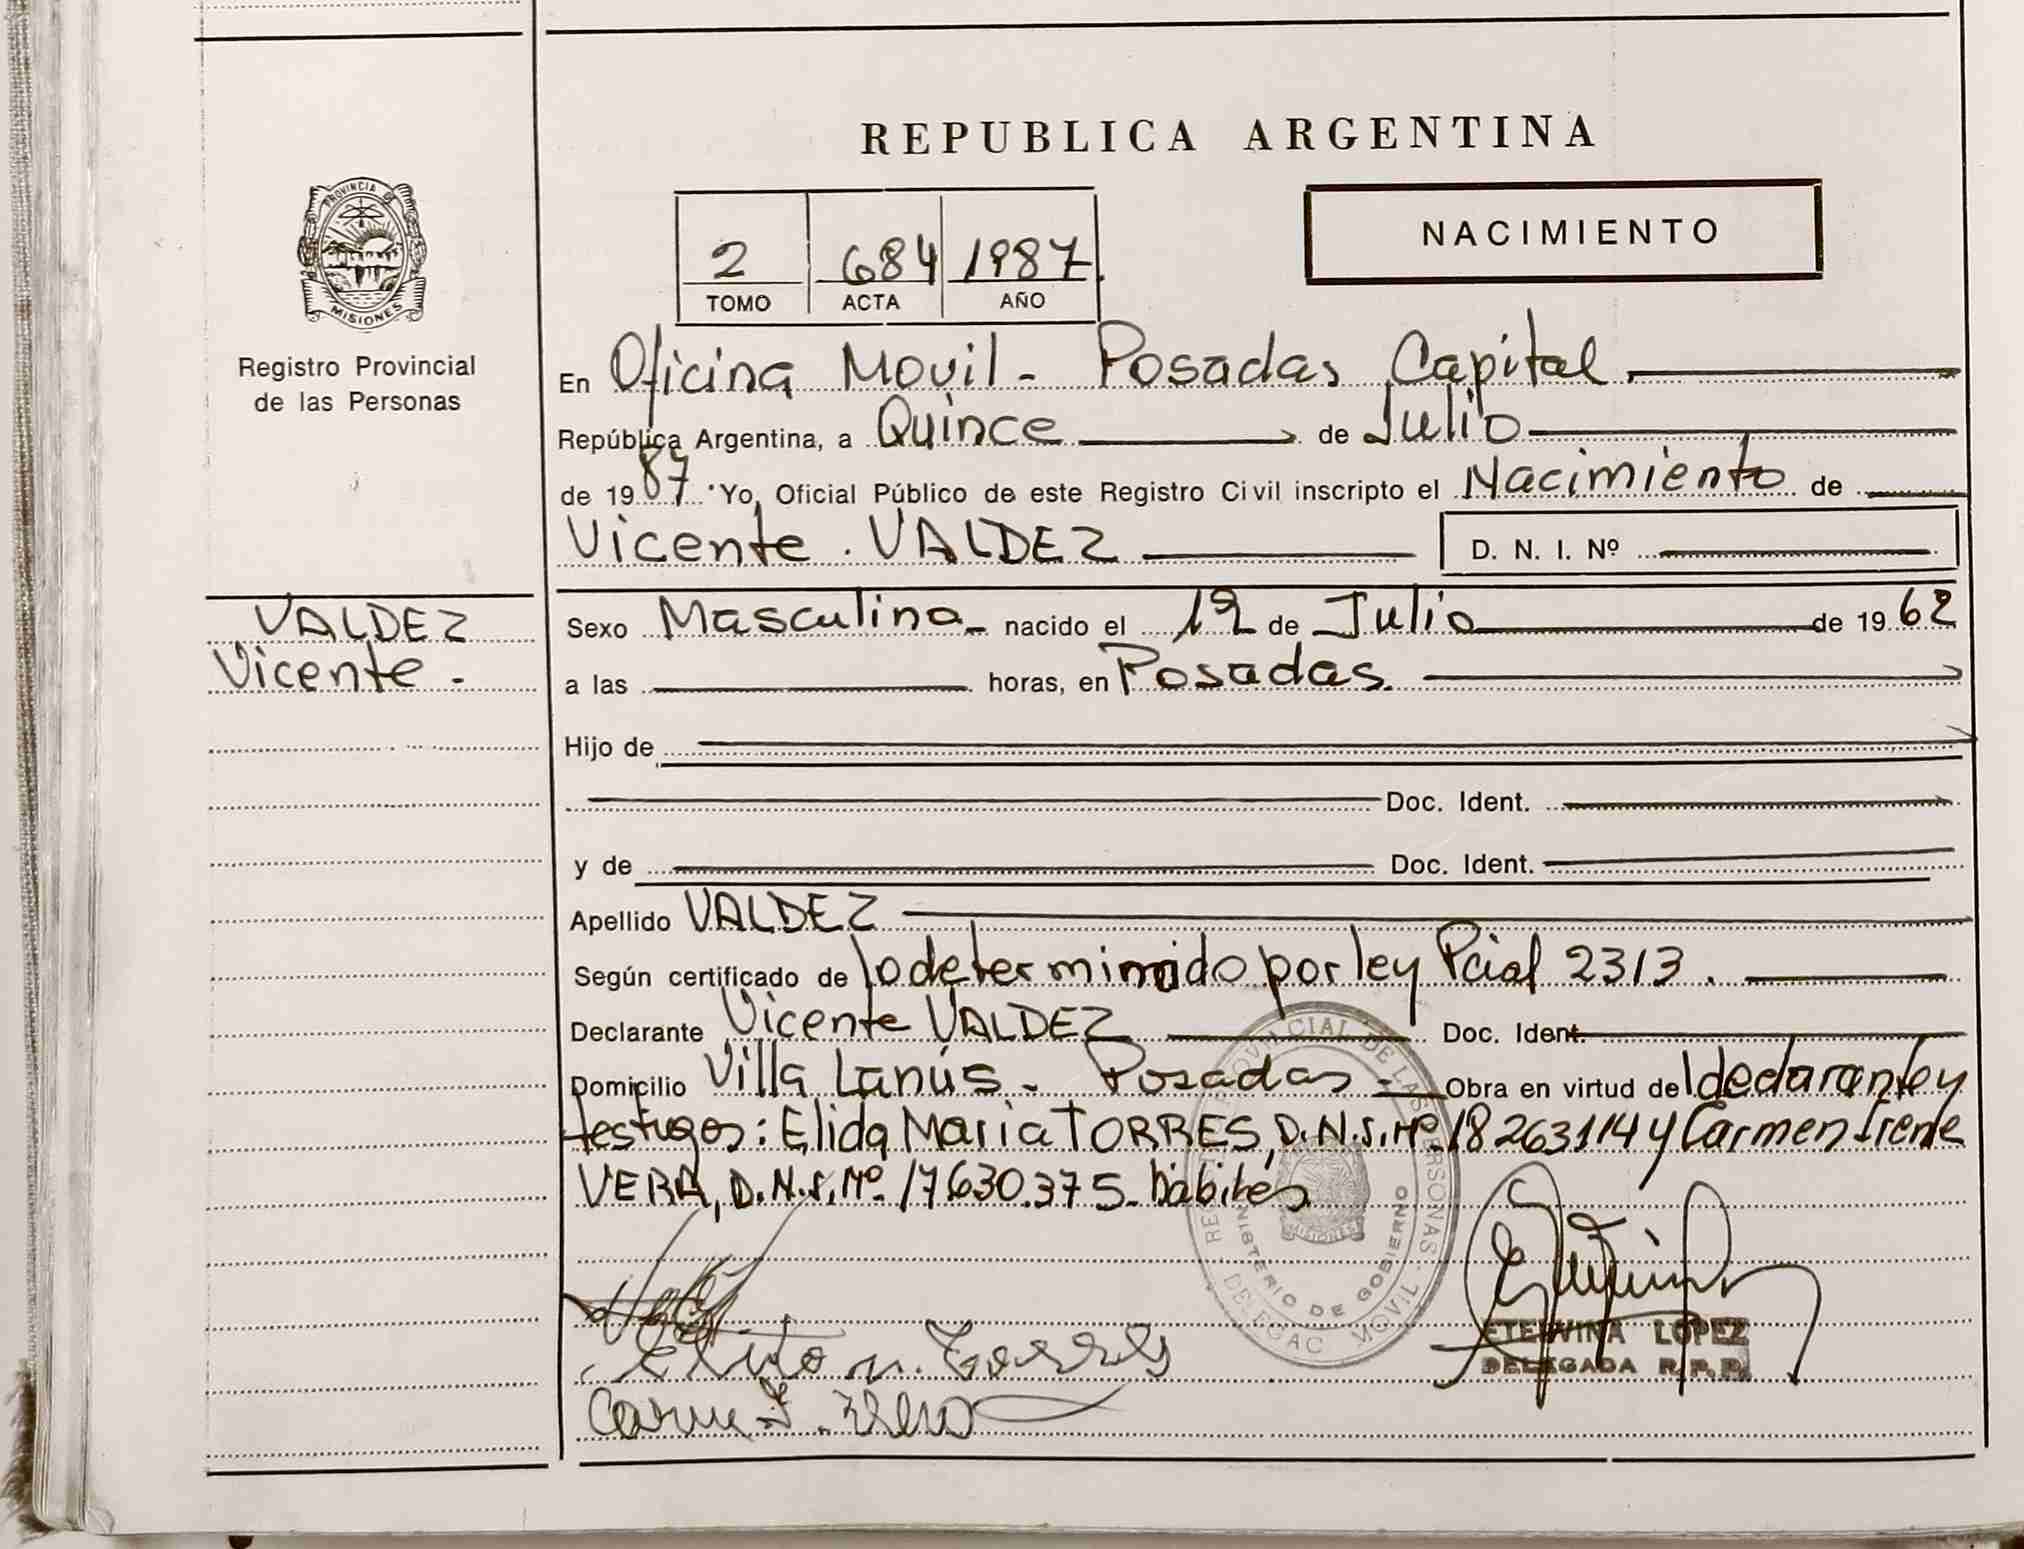 REPUBLICA ARGENTINA
NACIMIENTO
2 684 1987.
TOMO ACTA AÑO
PROVINCIA DE
MISIONES
Registro Provincial
de las Personas
En Oficina Movil - Posadas Capital.
República Argentina, a Quince de Julio
de 1987. Yo, Oficial Público de este Registro Civil inscripto el Nacimiento de
Vicente. VALDEZ D. N. I. Nº
VALDEZ
Vicente.-
Sexo Masculino - nacido el 12 de Julio de 1962
a las horas, en Posadas.
Hijo de
Doc. Ident.
y de Doc. Ident.
Apellido VALDEZ
Según certificado de lo determinado por ley Pcial 2313.
Declarante Vicente VALDEZ Doc. Ident.
Domicilio Villa Lanús - Posadas - Obra en virtud de declarante y
testigos: Elida Maria TORRES, D.N.I. Nº 18263114 y Carmen Irene
VERA, D.N.I. Nº 17630.375- hábiles
REGISTRO PROVINCIAL DE LAS PERSONAS
MINISTERIO DE GOBIERNO
MISIONES
DELEGAC MOVIL
ETELVINA LOPEZ
DELEGADA R.P.P.